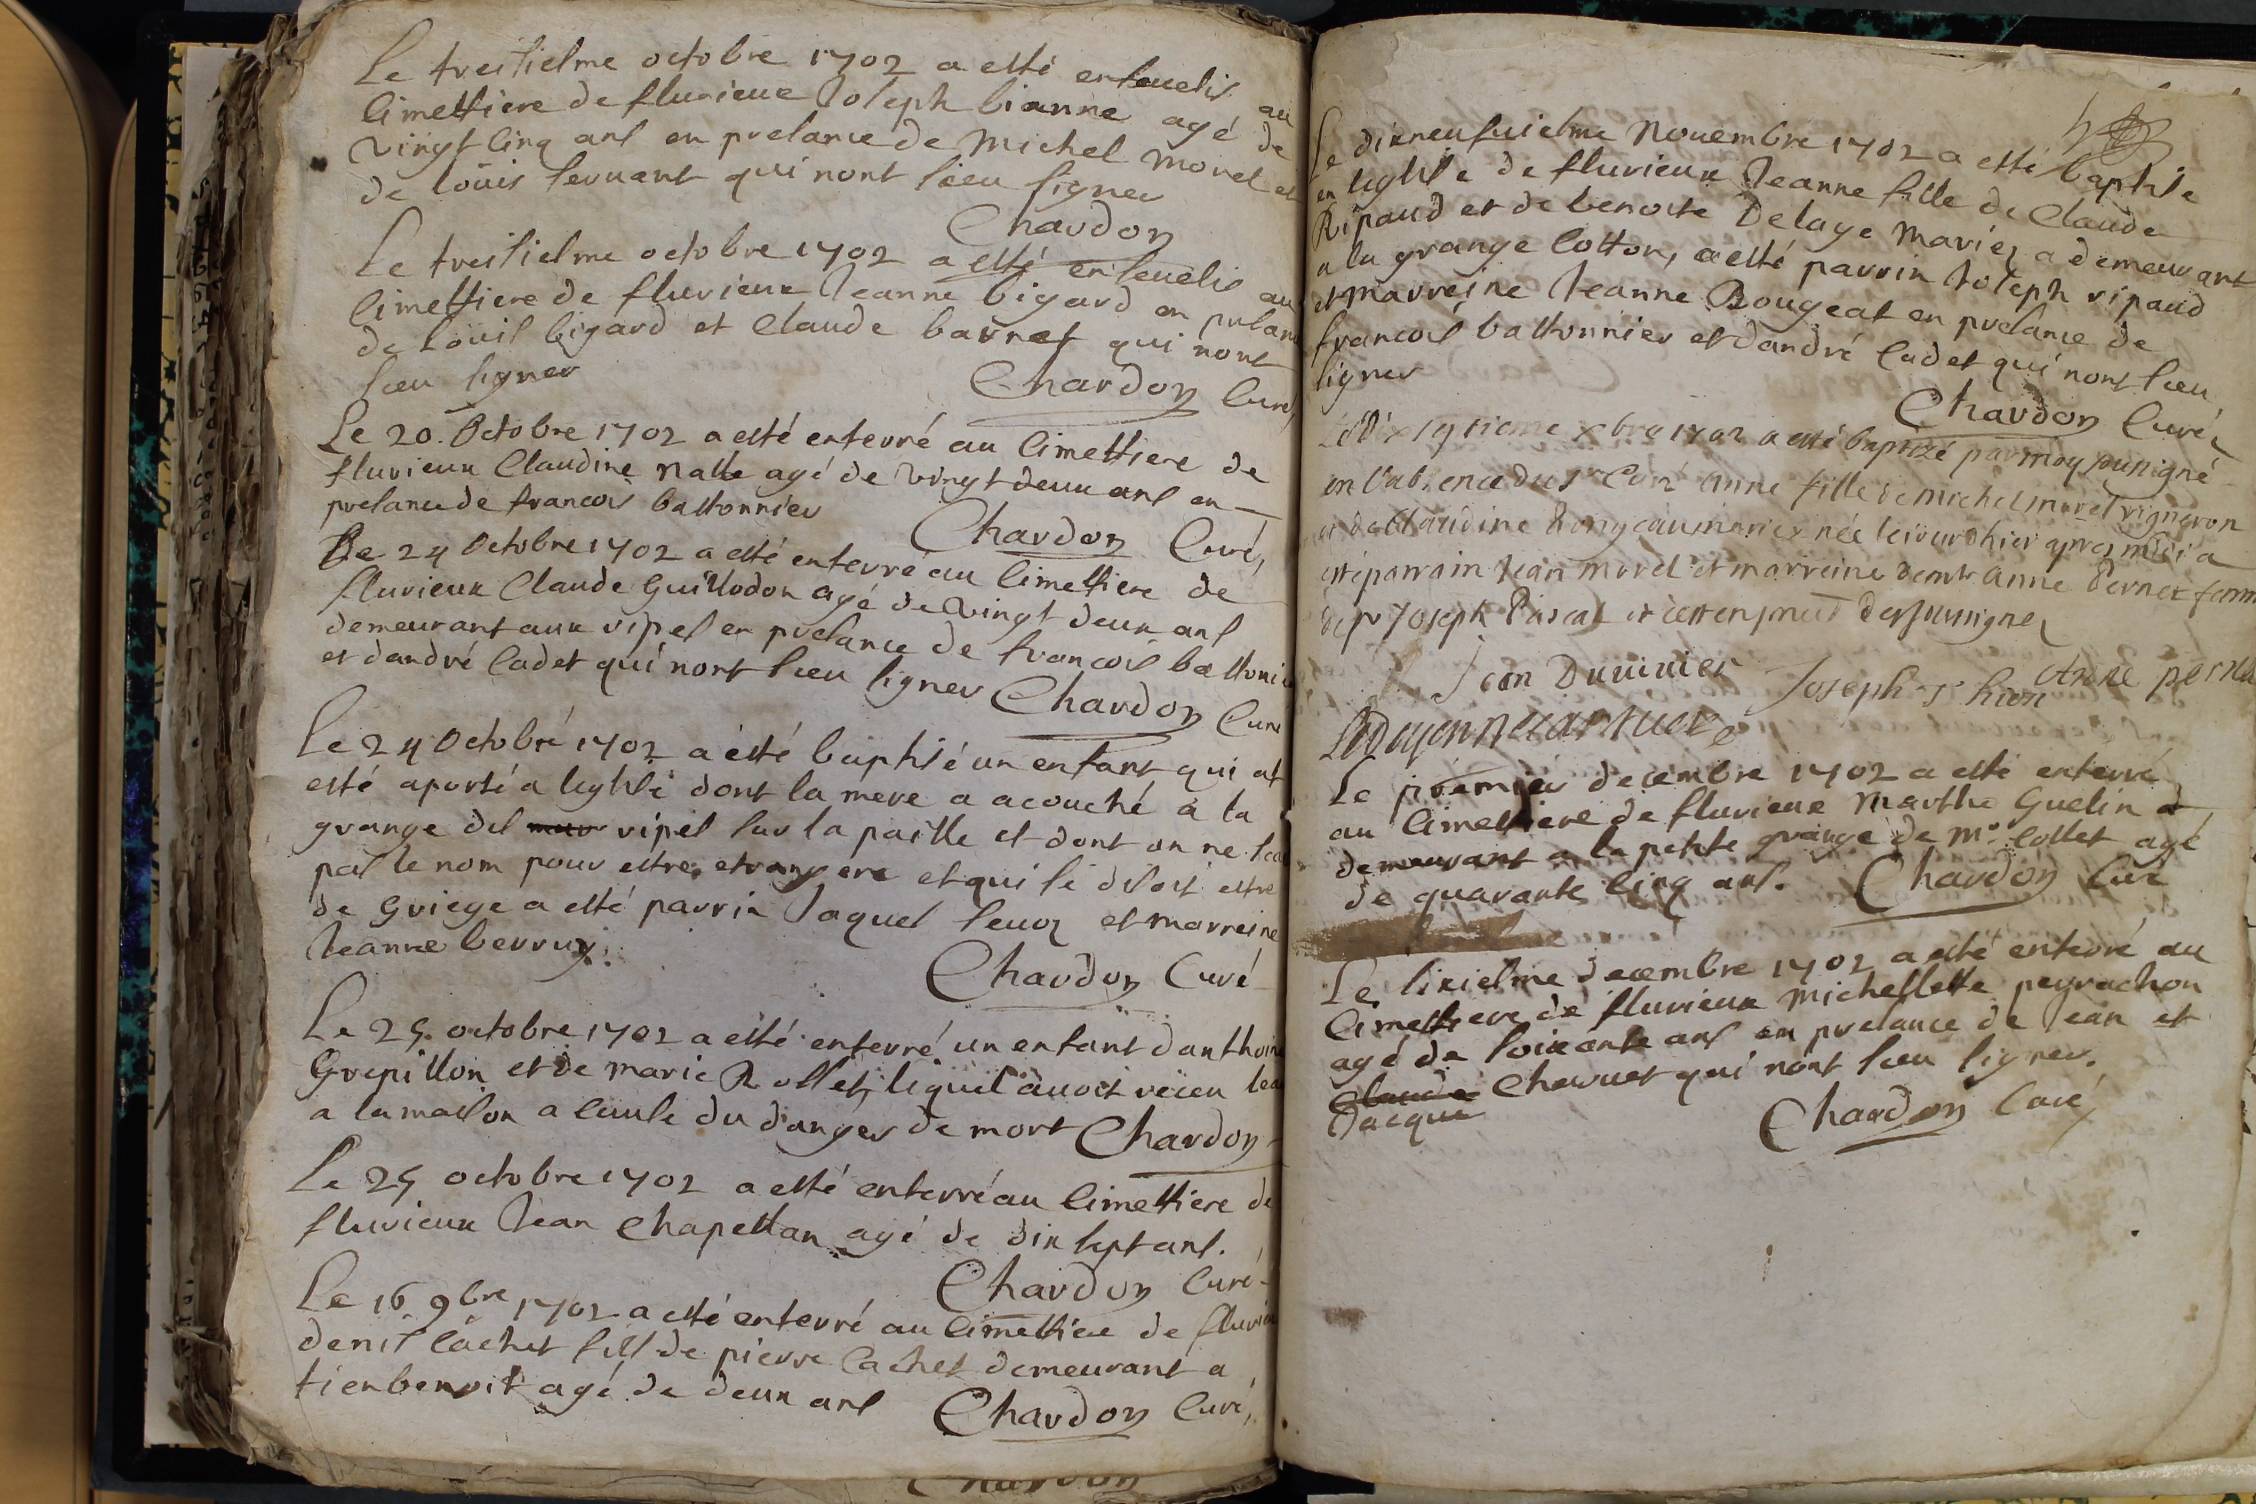 Le treisiesme octobre 1702 a esté enseuelis au
cimettiere de flurieux Joseph bianne agé de
vingt cinq ans en presance de Michel Morel et
de Loüis seruant qui nont sceu signer
Chardon
Le treisiesme octobre 1702 a esté enseuelis au
cimettiere de flurieux Jeanne bigard en presan
de Loüis bigard et Claude barret qui nont
sceu signer Chardon Curé,
Le 20. Octobre 1702 a esté enterré au Cimettiere de
flurieux Claudine Nalle agé de vingt deux ans en
presance de francois battonnier
Chardon Curé,
Le 24 Octobre 1702 a esté enterré au Cimettiere de
flurieux Claude Guillodon agé de vingt deux ans
demeurant aux ripes en presance de francois battoni
et dandré Cadet qui nont sceu signer Chardon Curé
Le 24 Octobre 1702 a esté baptisé un enfant qui at
esté aporté a leglise dont la mere a acouché a la
grange des ripes sur la paille et dont on ne sca
pas le nom pour estre etrangere et qui se disoit estre
de Griege a esté parrin Jaques et marreine
Jeanne berruy.
Chardon Curé
Le 25. octobre 1702 a esté enterré un enfant danthoine
Grepillon et de Marie Rollet, lequel auoit receu leau
a la maison a cause du danger de mort Chardon
Le 25 octobre 1702 a esté enterré au Cimettiere de
flurieux Jean Chapellan agé de dix sept ans.
Chardon Curé
Le 16 9bre 1702 a esté enterré au Cimettiere de flurieu
denis Cachet fils de pierre Cachet demeurant a
tienbenoit agé de deux ans Chardon Curé,
Chardon
Le dixneufuiesme Nouembre 1702 a esté baptisée
en leglise de flurieux Jeanne fille de Claude
Ripaud et de benoite Delaye Mariez a demeurant
a la grange Cotton, a esté parrin Joseph ripaud
et marreine Jeanne Bougeat en presance de
francois battonnier et dandré Cadet qui nont sceu
signer
Chardon Curé
Le Dix septieme xbre 1702 a esté baptizé par moy sousigné
en l'absence du sr Curé anne fille de michel morel vigneron
et de Claudine mariez née le jour dhier apres midi a
esté parrain Jean morel et marreine demlle anne Pernet femm
de sr Joseph Pascal et en presence des soussignez
Jean Duuiuier Joseph Thion Anne pernet
Le premier decembre 1702 a esté enterré
au Cimettiere de flurieux Marthe Guelin
demeurant a la petite grange de Mr Collet agé
de quarante cinq ans. Chardon Curé
Le sixiesme decembre 1702 a esté enterré au
Cimettiere de flurieux Michellette peyrachon
agé de soixante ans en presance de Jean et
Claude Chevuet qui nont sceu signer.
Jacque
Chardon Curé